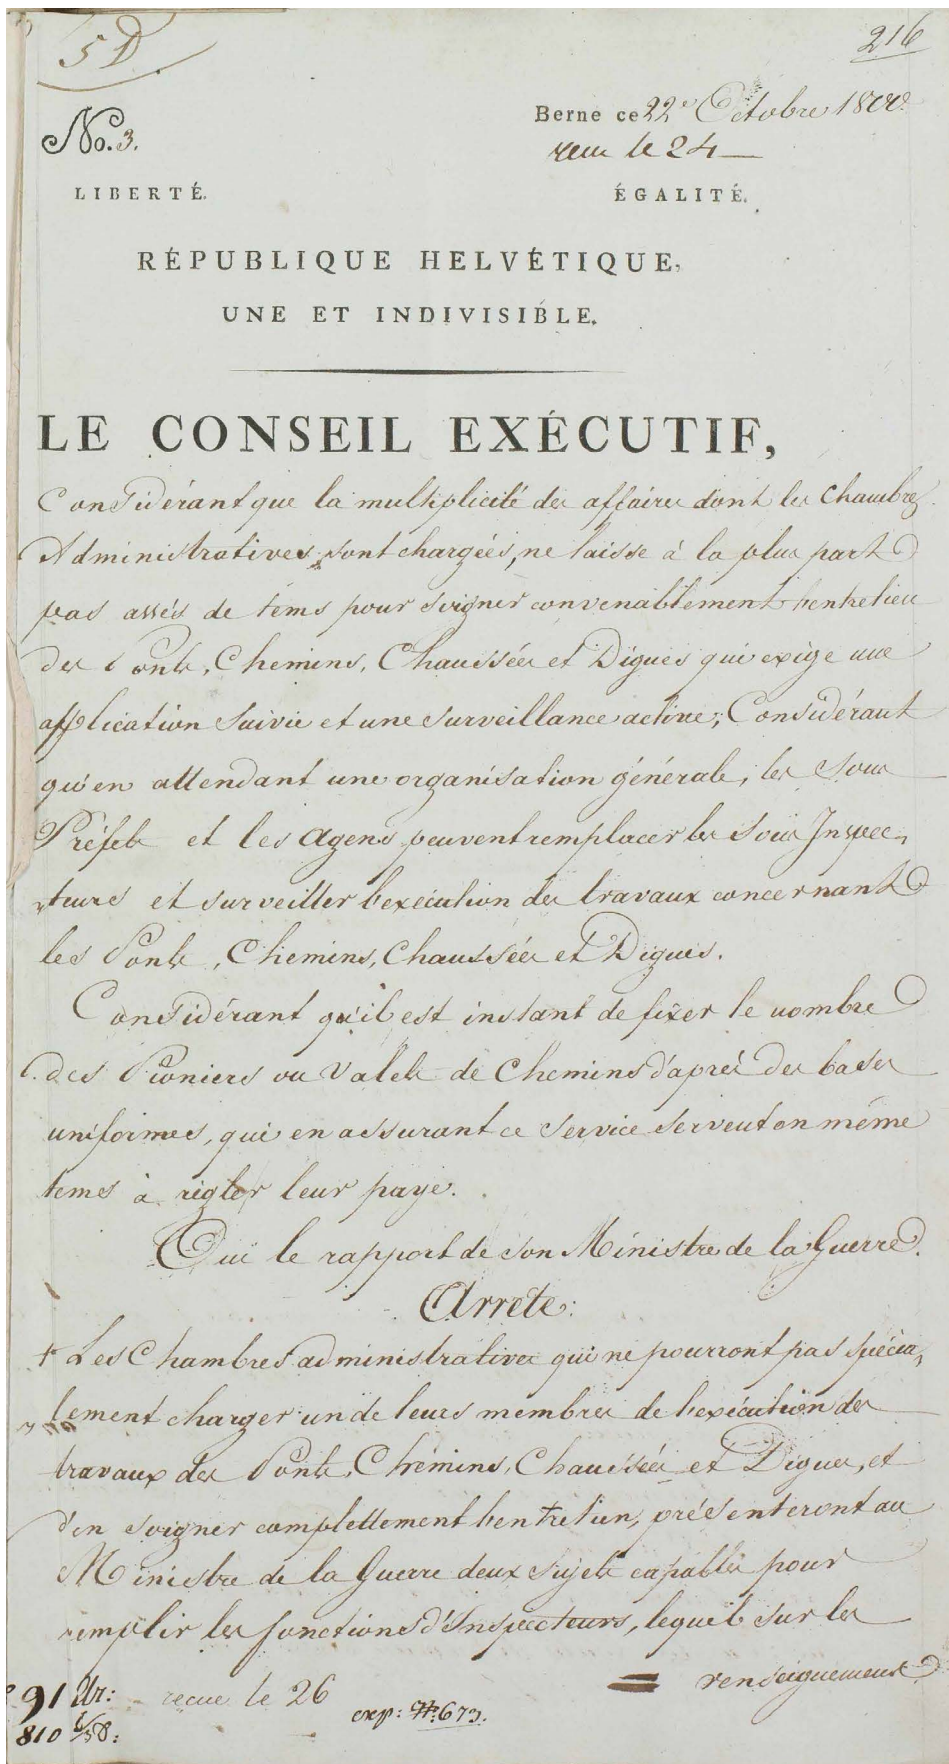 5 D
216
No. 3.
Berne ce 22e Octobre 1800.
reçu le 24
LIBERTÉ.
ÉGALITÉ.
RÉPUBLIQUE HELVÉTIQUE,
UNE ET INDIVISIBLE.
LE CONSEIL EXÉCUTIF,
Considérant que la multiplicité des affaires dont les Chambres
Administratives sont chargées, ne laisse à la plus part
pas assés de tems pour soigner convenablement l'entretien
des Ponts, Chemins, Chaussées et Digues qui exige une
application suivie et une surveillance active; Considérant
qu'en attendant une organisation générale, les sous
Préfets et les Agens peuvent remplacer les sous Inspec-
-teurs et surveiller l'exécution des travaux concernant
les Ponts, Chemins, Chaussées et Digues.
Considérant qu'il est instant de fixer le nombre
des Pioniers ou Valets de Chemins d'après des bases
uniformes, qui en assurant ce service servent en même
tems à régler leur paye.
Ouï le rapport de son Ministre de la Guerre.
Arrete:
+ Les Chambres administratives qui ne pourront pas spécia-
lement charger un de leurs membres de l'exécution des
travaux des Ponts, Chémins, Chaussées et Digues, et
d'en soigner complettement l'entretien, présenteront au
Ministre de la Guerre deux sujets capables pour
remplir les fonctions d'Inspecteurs, lequel sur les
= renseignemens
91 Ur: recue le 26
810 exp: N. 673.